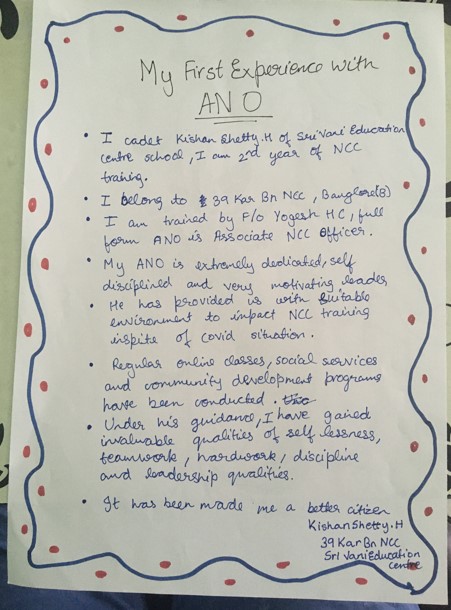 My First Experience with
ANO
• I cadet Kishan Shetty.H of Sri Vani Education
centre school, I am 2nd year of NCC
training.
• I belong to 39 Kar Bn NCC, Banglore(B)
• I am trained by F/o Yogesh HC, full
form ANO is Associate NCC Officer.
• My ANO is extremely dedicated, self
disciplined and very motivating leader
• He has provided is with suitable
environment to impact NCC training
inspite of covid situation.
• Regular online classes, social services
and community development programs
have been conducted.
• Under his guidance, I have gained
invaluable qualities of selflessness,
teamwork, hardwork, discipline
and leadership qualities.
• It has been made me a better citizen
Kishan Shetty.H
39 Kar Bn NCC
Sri Vani Education
centre